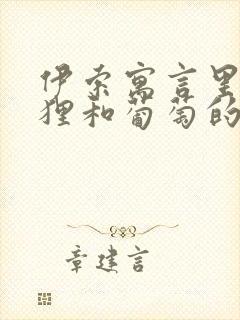 伊索寓言里
狸和葡萄的
章建言